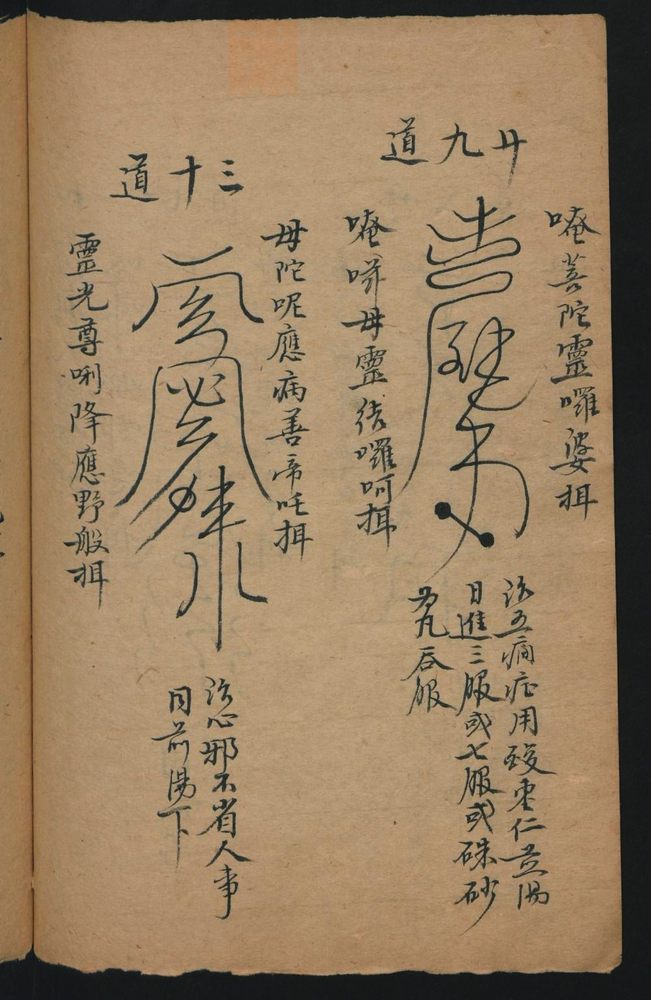 廿九道
唵菩陀靈囉婆揖
唵㖿母靈結囉呵揖
治五癇症用酸枣仁煎湯
日進三服或七服或硃砂
為丸吞服
三十道
母陀呢應病善帝吒揖
靈光尊唎降應野般揖
治心邪不省人事
同前湯下